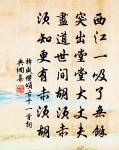 西江一吸了無餘
突出堂堂大丈夫
盡道世間胡須赤
須知更有赤須胡
咸傑頌古十一首詞
典網集